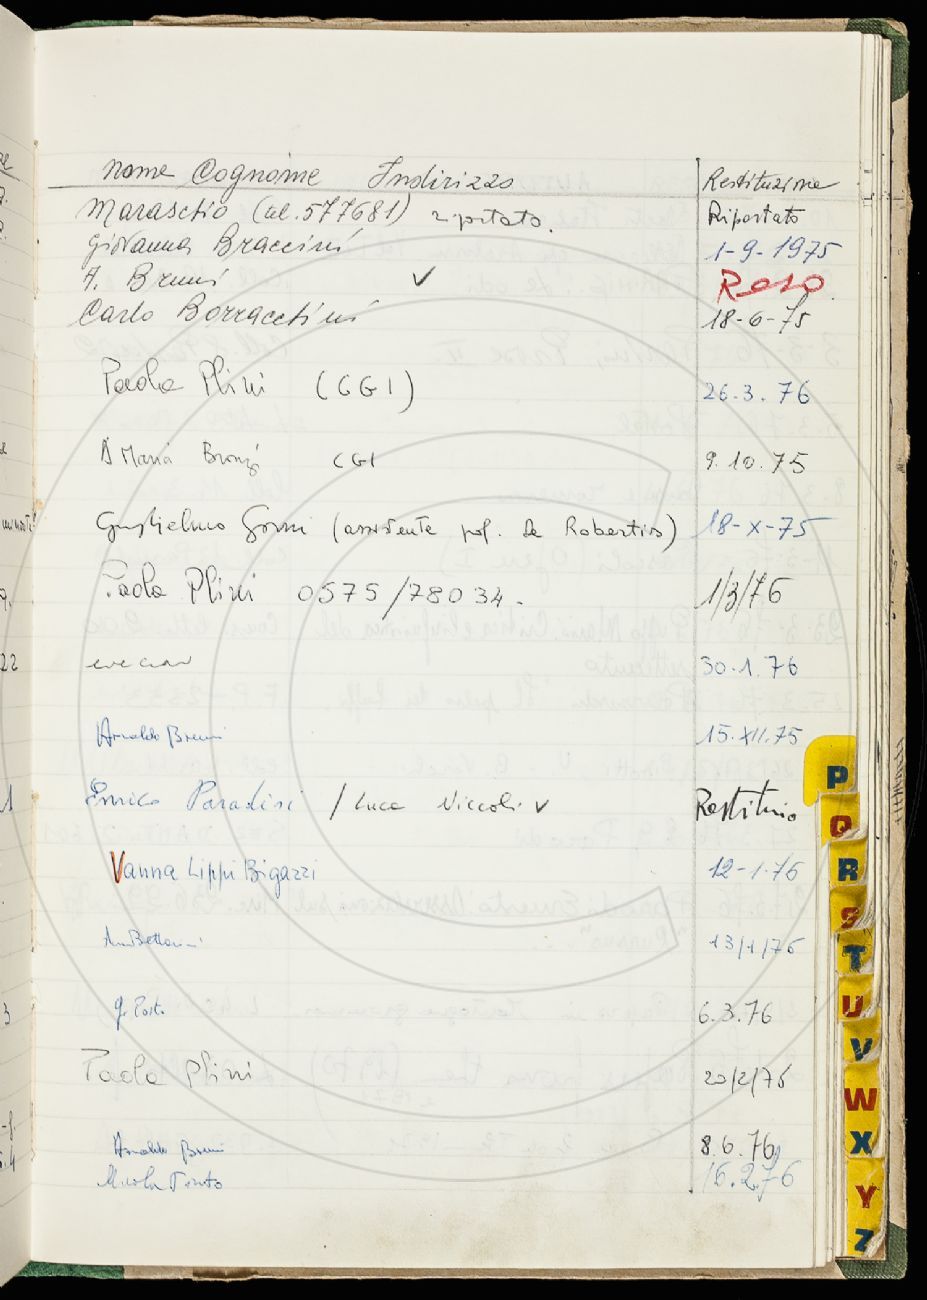 Nome Cognome Indirizzo Restituzione
Maraschio (tel. 577681) riportato. Riportato
Giovanna Braccini 1-9-1975
A. Bruni ✓ Reso
Carlo Borracchini 18-6-75
Paola Plini (CGI) 26.3.76
Maria CGI 9.10.75
Guglielmo Gorni (assistente prof. De Robertis) 18-X-75
Paola Plini 0575/78034. 1/3/76
30.1.76
Arnaldo Bruni 15.XII.75
Enrico Paradisi / Luca Niccoli v
Vanna Lippi Bigazzi 12-1-76
13/1/76
6.3.76
Paola Plini 20/2/76
Arnaldo Bruni 8.6.76
16.2.76
P
Q
R
S
T
U
V
W
X
Y
Z